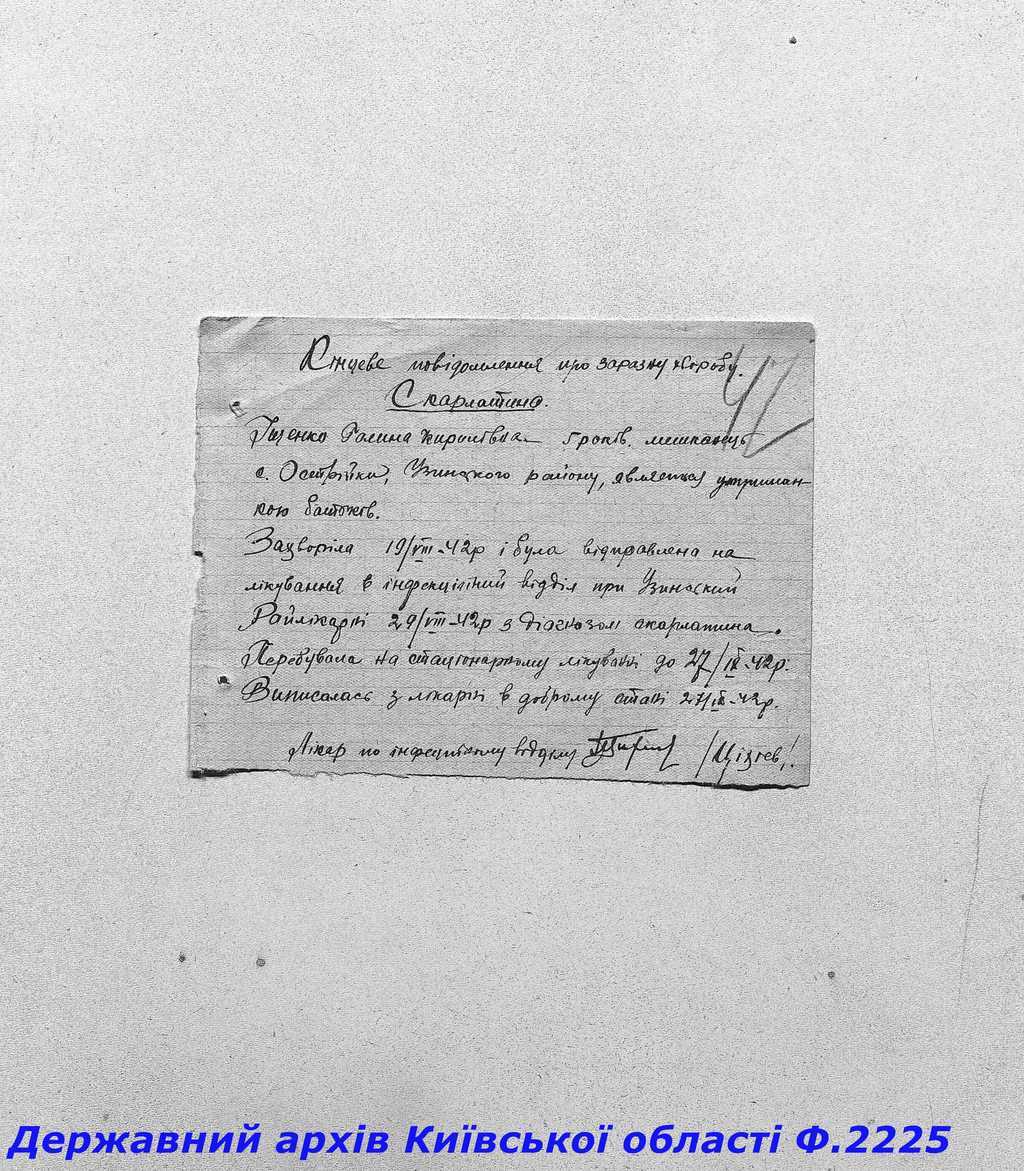 Кінцеве повідомлення про заразну хоробу.
42
Скарлатина.
Іщенко Галина 5 років. мешканець
с. Острійки, Узинского району, являється утриман-
кою батьків.
Захворіла 19/VIII-42р і була відправлена на
лікування в інфекційний відділ при Узинский
Райлікарні 29/VIII-42р з діагнозом скарлатина.
Перебувала на стаціонарному лікуванні до 27/IX-42р.
Виписалась з лікарні в доброму стані 27/IX-42р.
Лікар по інфекційному відділу
Державний архів Київської області Ф.2225